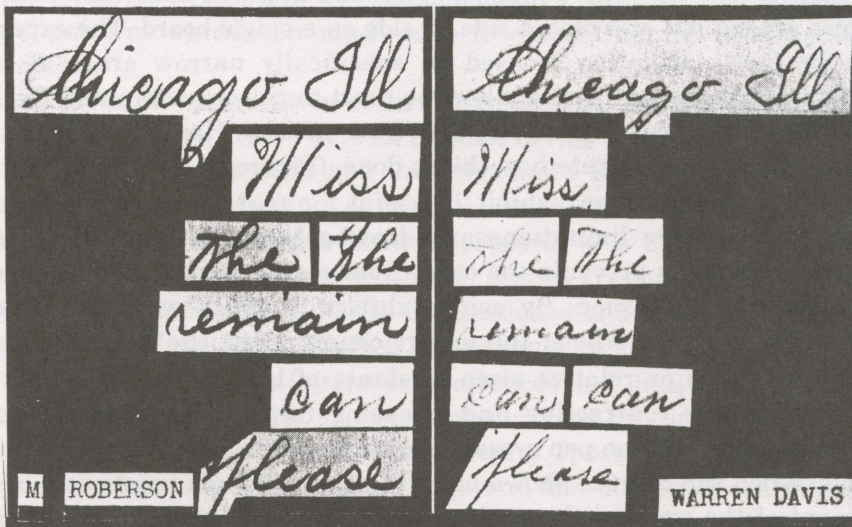 Chicago Ill
Miss
The the
remain
can
please
M ROBERSON
Chicago Ill
Miss
the The
remain
can can
please
WARREN DAVIS